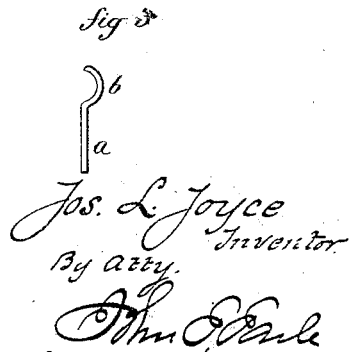 fig 5
b
a
Jos. L. Joyce
Inventor.
By Atty.
John E. Earle